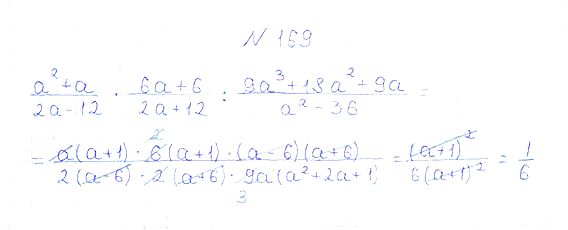 N 169
(a² + a)/(2a - 12) · (6a + 6)/(2a + 12) : (9a³ + 18a² + 9a)/(a² - 36) =
= (a(a+1) · 6(a+1) · (a-6)(a+6))/(2(a-6) · 2(a+6) · 9a(a²+2a+1)) = (a+1)²/(6(a+1)²) = 1/6
2
3